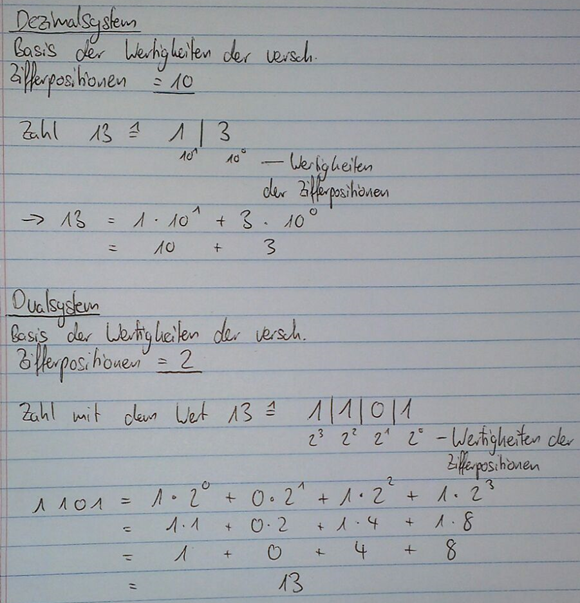 Dezimalsystem
Basis der Wertigkeiten der versch.
Zifferpositionen = 10
Zahl 13 ≙ 1 | 3
10¹ 10⁰ — Wertigkeiten
der Zifferpositionen
→ 13 = 1 · 10¹ + 3 · 10⁰
= 10 + 3
Dualsystem
Basis der Wertigkeiten der versch.
Zifferpositionen = 2
Zahl mit dem Wert 13 ≙ 1|1|0|1
2³ 2² 2¹ 2⁰ – Wertigkeiten der
Zifferpositionen
1101 = 1·2⁰ + 0·2¹ + 1·2² + 1·2³
= 1·1 + 0·2 + 1·4 + 1·8
= 1 + 0 + 4 + 8
= 13